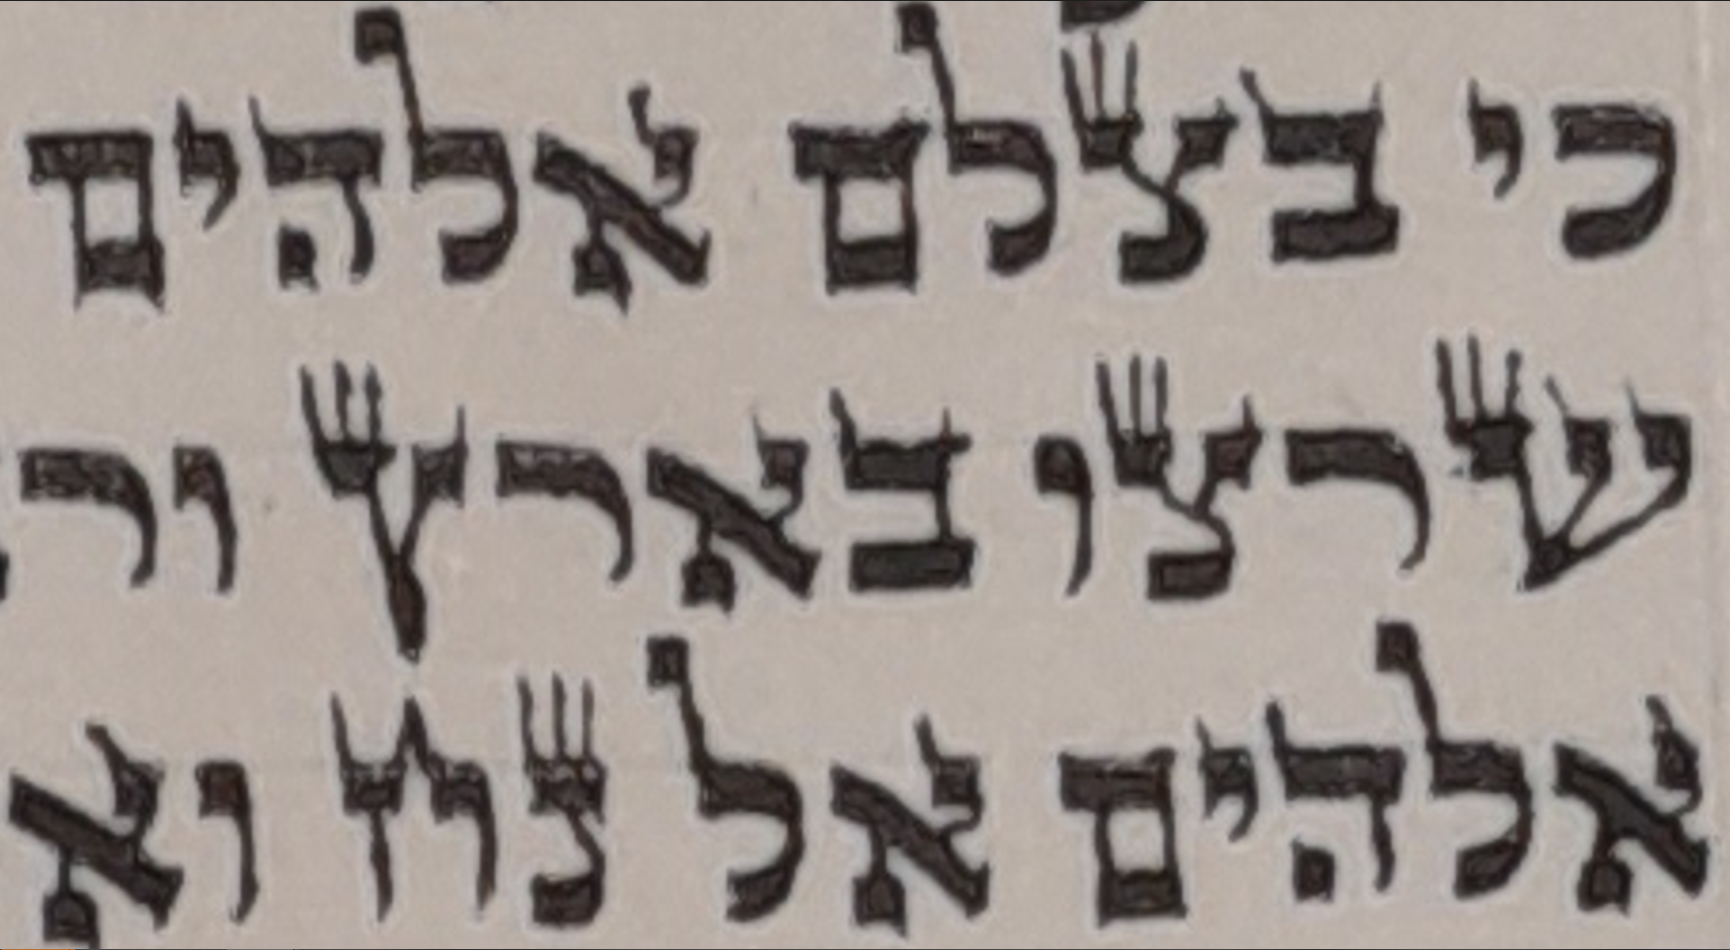 כי בצלם אלהים
שרצו בארץ ור
אלהים אל נח וא